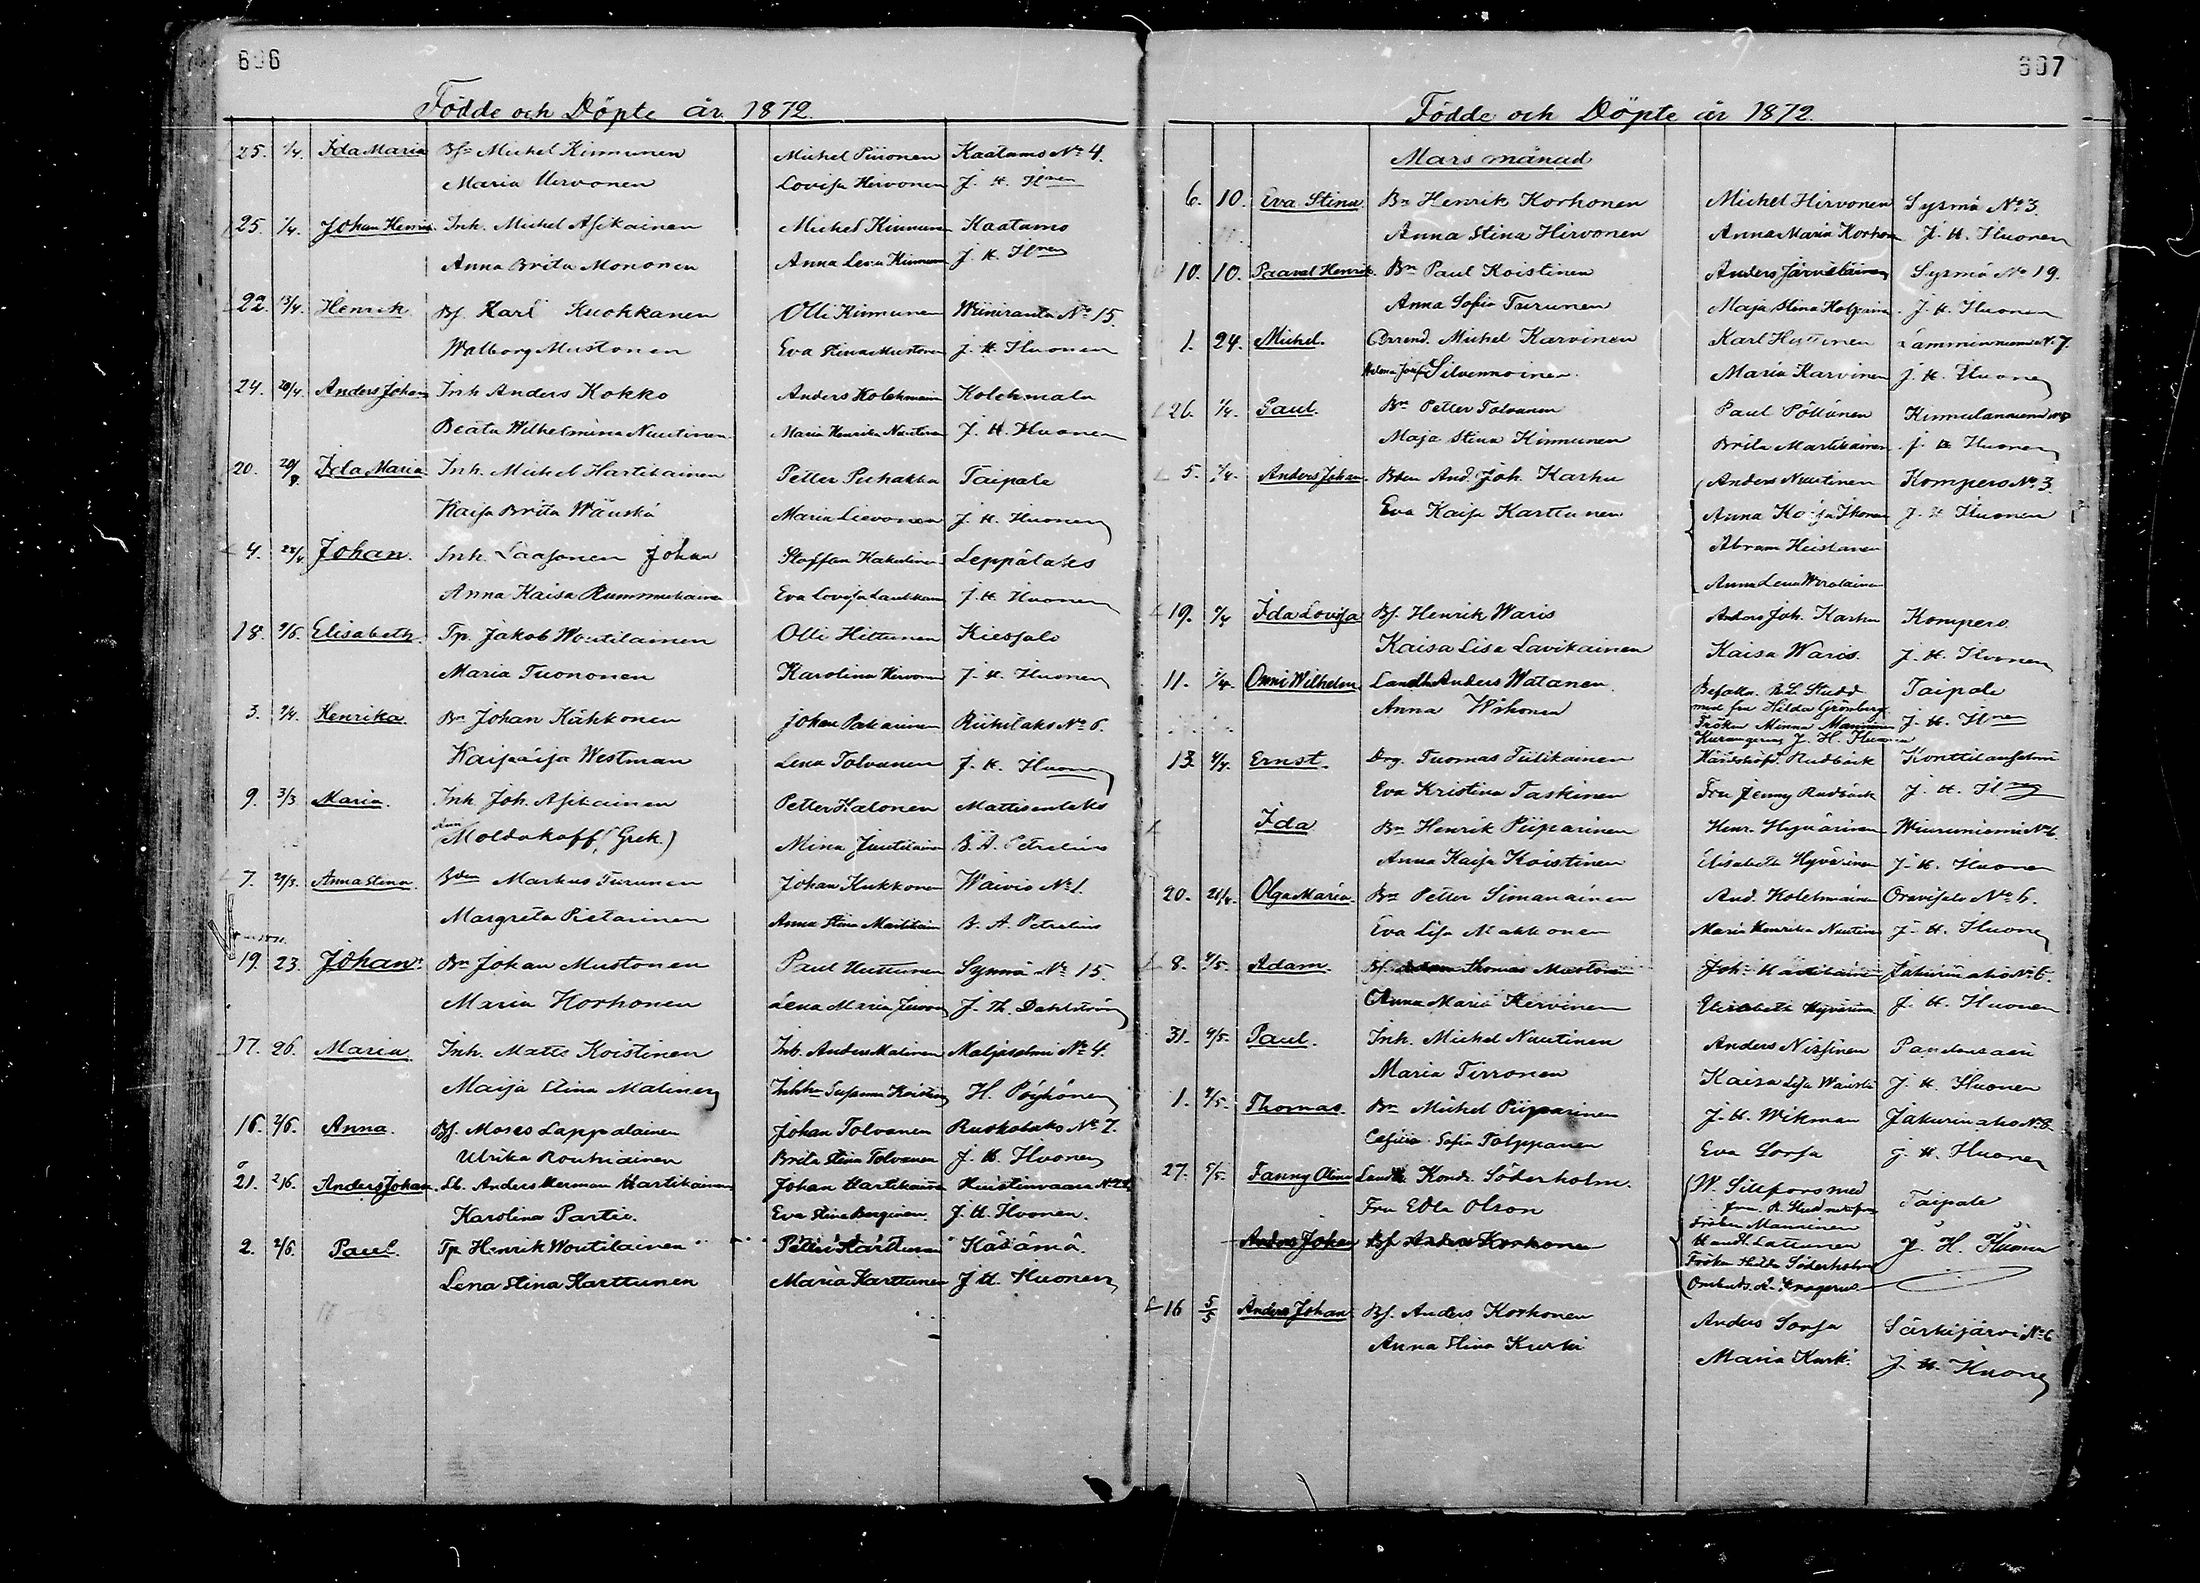 606
Födde och Döpte år 1872.
25. 1/4. Ida Maria Bf. Michel Kinnunen Michel Piironen Kaatamo No 4.
Maria Hirvonen Lovisa Hirvonen J. H. Hnen
25. 1/4. Johan Henrik Inh. Michel Asikainen Michel Kinnunen Kaatamo
Anna Brita Mononen Anna Lena Kinnunen J. H. Hnen
22. 13/4. Henrik Bf. Karl Kuokkanen Olli Kinnunen Wiiniranta No 15.
Walborg Mustonen Eva Stina Mustonen J. H. Huonen
24. 20/4. Anders Johan Inh Anders Kokko Anders Kolehmain Kolehmala
Beata Wilhelmina Nuutinen Maria Henrika Nuutinen J. H. Huonen
20. 20/4 Ida Maria Inh. Michel Hartikainen Petter Puhakka Taipale
Kaisa Brita Wänskä Maria Lievonen J. H. Huonen
4. Johan. Inh. Laasonen Johan Staffan Leppälaks
Anna Kaisa Rummukainen Eva Lovisa J. H. Huonen
18. 2/6. Elisabeth. Tp. Jakob Woutilainen Olli Hiltunen Kiessalo
Maria Tuononen Karolina Hirvonen J. H. Huonen
3. Henrika. Bn Johan Kähkonen Johan Pakarinen Riihilaks No 6.
Westman Lena Tolvanen J. H. Huonen
9. 3/3 Maria. Inh Joh. Asikainen Petter Halonen Mattisenlaks
Moldakoff (Grek.) Mina Juutilainen B. A. Petrelius
7. 29/3. Anna Stina. Bden Markus Turunen Johan Kukkonen Waivio No 1.
Margreta Pietarinen Anna Stina Martikain B. A. Petrelius
19. 23. Johan. Bn Johan Mustonen Paul Huttunen Sysmä No 15.
Maria Korhonen Lena Maria J. Th. Dahlström
17. 26. Maria Inh. Matts Koistinen Inh. Anders Malinen Maljasalmi No 4.
Maija Stina Malinen Susanna Koistinen H. Pöyhönen
16. 2/6. Anna. Bf. Moses Lappalainen Johan Tolvanen Ruokolaks No 7.
Ulrika Rouhiainen Brita Stina Tolvanen J. H. Huonen
21. 2/6. Anders Johan. Lb. Anders Herman Martikainen Johan Martikainen Huistinvaara
Karolina Partio. Eva Stina Berginen. J. H. Huonen.
2. 2/6. Paul. Tp Henrik Woutilainen Petter Karttunen Käsämä.
Lena Stina Karttunen Maria Karttunen J H. Huonen
607
Födde och Döpte år 1872.
Mars månad
6. 10. Eva Stina Bn Henrik Korhonen Michel Hirvonen Sysmä No 3.
Anna Stina Hirvonen Anna Maria Korhon J. H. Huonen
10. 10. Paaval Henrik. Bn Paul Koistinen Anders Järveläinen Sysmä No 19.
Anna Sofia Turunen Maja Stina J. H. Huonen
1. 24. Michel. Arrend. Michel Karvinen Karl Huttunen Lamminniemi No 7.
Helena Josefa Silvennoinen. Maria Karvinen J. H. Huonen
26. 1/4. Paul. Bn Petter Tolvanen Paul Pöllänen
Maja Stina Kinnunen Brita Martikainen J. H. Huonen
5. 1/4. Anders Johan. Bden And. Joh. Karhu Anders Nuutinen Kompero No 3.
Eva Kaisa Karttunen Anna Kaisa Ikonen J. H. Huonen
Abram Heiskanen
Anna Lena Wirolainen
19. Ida Lovisa Bf. Henrik Waris Anders Joh. Karhu Kompero
Kaisa Lisa Lavikainen Kaisa Waris. J. H. Huonen
11. 1/4. Onni Wilhelm. Landh Anders Watanen. Befalln. R. L. Studd Taipale
Anna med fru Hilda Grönberg J. H. Hnen
Fröken Minna Manninen
J. H. Huonen
13. 4/4. Ernst. Drg. Tuomas Tiilikainen Rudbäck
Eva Kristina Taskinen Fru Jenny Rudbäck J. H. Hnen
Ida Bn Henrik Piiparinen Henr. Hyvärinen Wiuruniemi No 6.
Anna Kaisa Koistinen Elisabeth Hyvärinen J. H. Huonen
20. 21/4. Olga Maria. Bn Petter Simanainen And. Kolehmainen Oravisalo No 6.
Eva Lisa Makkonen Maria Henrika Nuutinen J. H. Huonen
8. 4/5. Adam. Bf. Thomas Mustonen Joh. Martikainen Jakurinaho No 6.
Anna Maria Hervinen Elisabeth Hyvärinen J. H. Huonen
31. 4/5. Paul. Inh. Michel Nuutinen Anders Nissinen
Maria Tirronen Kaisa Lisa J. H. Huonen
1. 4/5. Thomas. Bn Michel Piiparinen J. H. Wikman Jakurinaho No 8.
Cesilia Sofia Tolppanen Eva Sorsa J. H. Huonen
27. 5/5. Fanny Olina Kondr. Söderholm. W. Sillfors med
Fru Edla Olson Taipale
Fröken Manninen
Anders Johan Bf Anders Korhonen Handl. Lattunen J. H. Huonen
Fröken Hilda Söderholm
Ombuds. K. Krogerus
16 5/5 Anders Johan. Bf. Anders Korhonen Anders Sorsa Särkijärvi No 6
Anna Stina Kurki Maria Kurki. J. H. Huonen